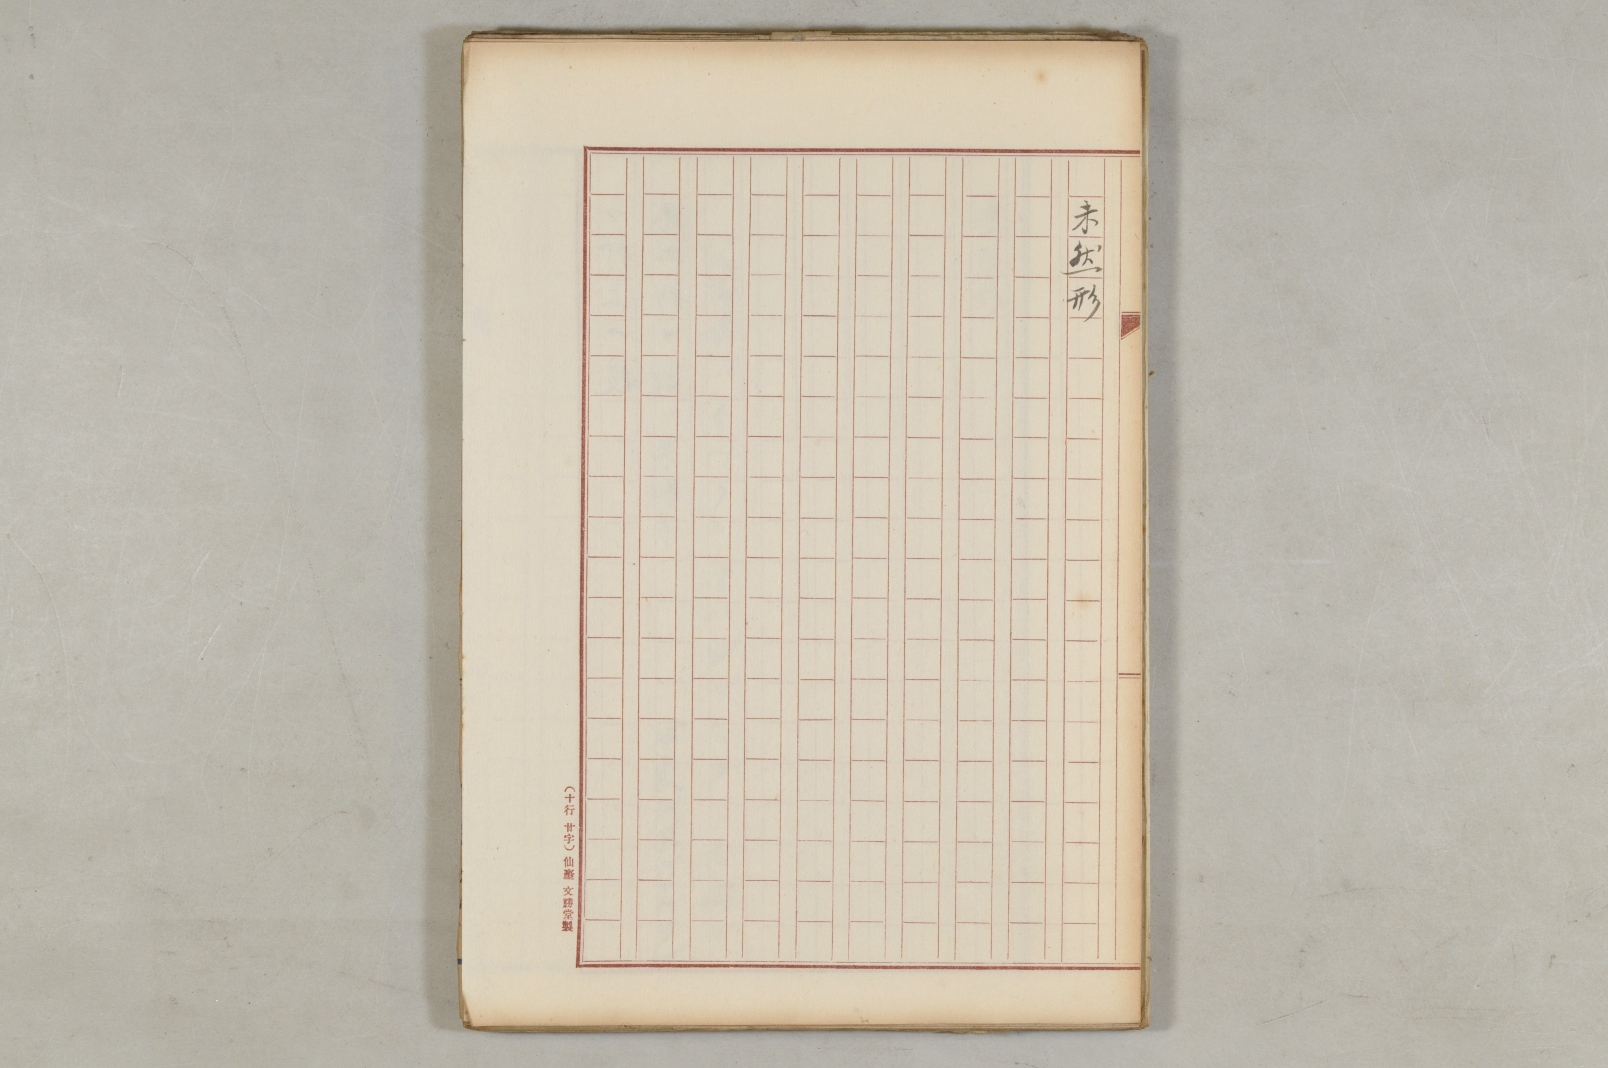 未然形
(十行 廿字) 仙臺 文勝堂製